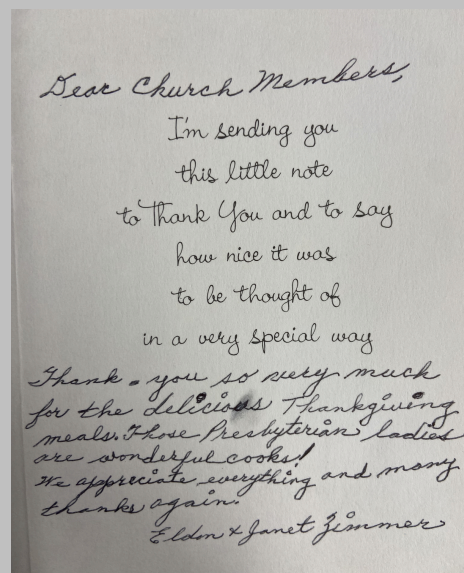 Dear Church Members,
I'm sending you
this little note
to Thank You and to say
how nice it was
to be thought of
in a very special way
Thank-you so very much
for the delicious Thankgiving
meals. Those Presbyterian ladies
are wonderful cooks!
We appreciate everything and many
thanks again.
Eldon & Janet Zimmer